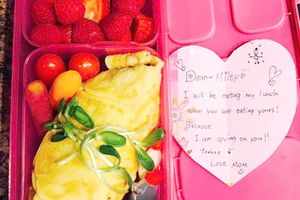 Dear Miley
I will be eating my lunch
when you are eating yours!
Because
I am spying on you!!
Love, Mom